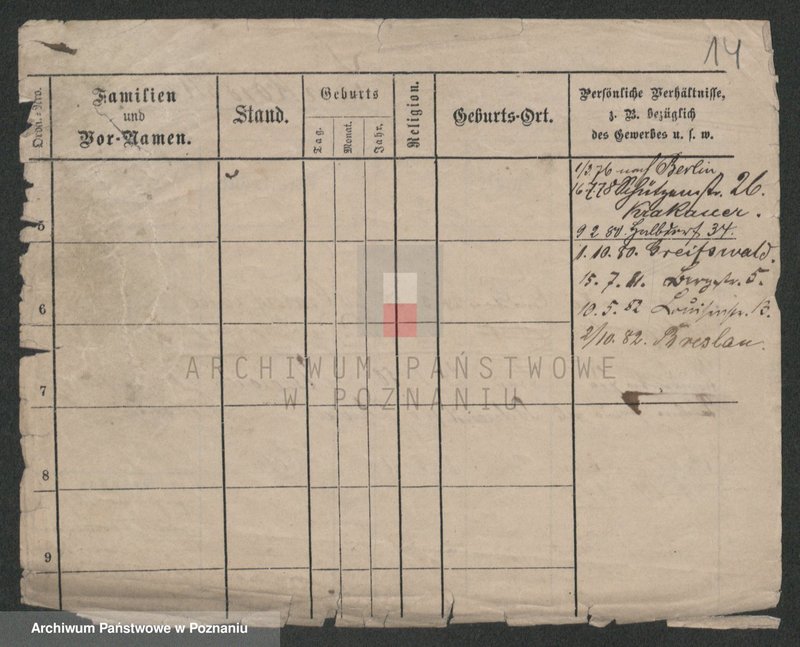 14
Ordn.-Nro.
Familien
und
Vor-Namen.
Stand.
Geburts
Tag.
Monat.
Jahr.
Religion.
Geburts-Ort.
Persönliche Verhältnisse,
z. B. bezüglich
des Gewerbes u. s. w.
1/3 76 nach Berlin
16/7 78 Schützenstr. 26.
Krakauer.
9 2 80. Halbdorf 37.
1. 10. 80. Greifswald.
15. 7. 81. Bergstr. 5.
10. 5. 82 Louisenstr. 13.
2/10. 82. Breslau.
5
6
7
8
9
ARCHIWUM PAŃSTWOWE
W POZNANIU
Archiwum Państwowe w Poznaniu